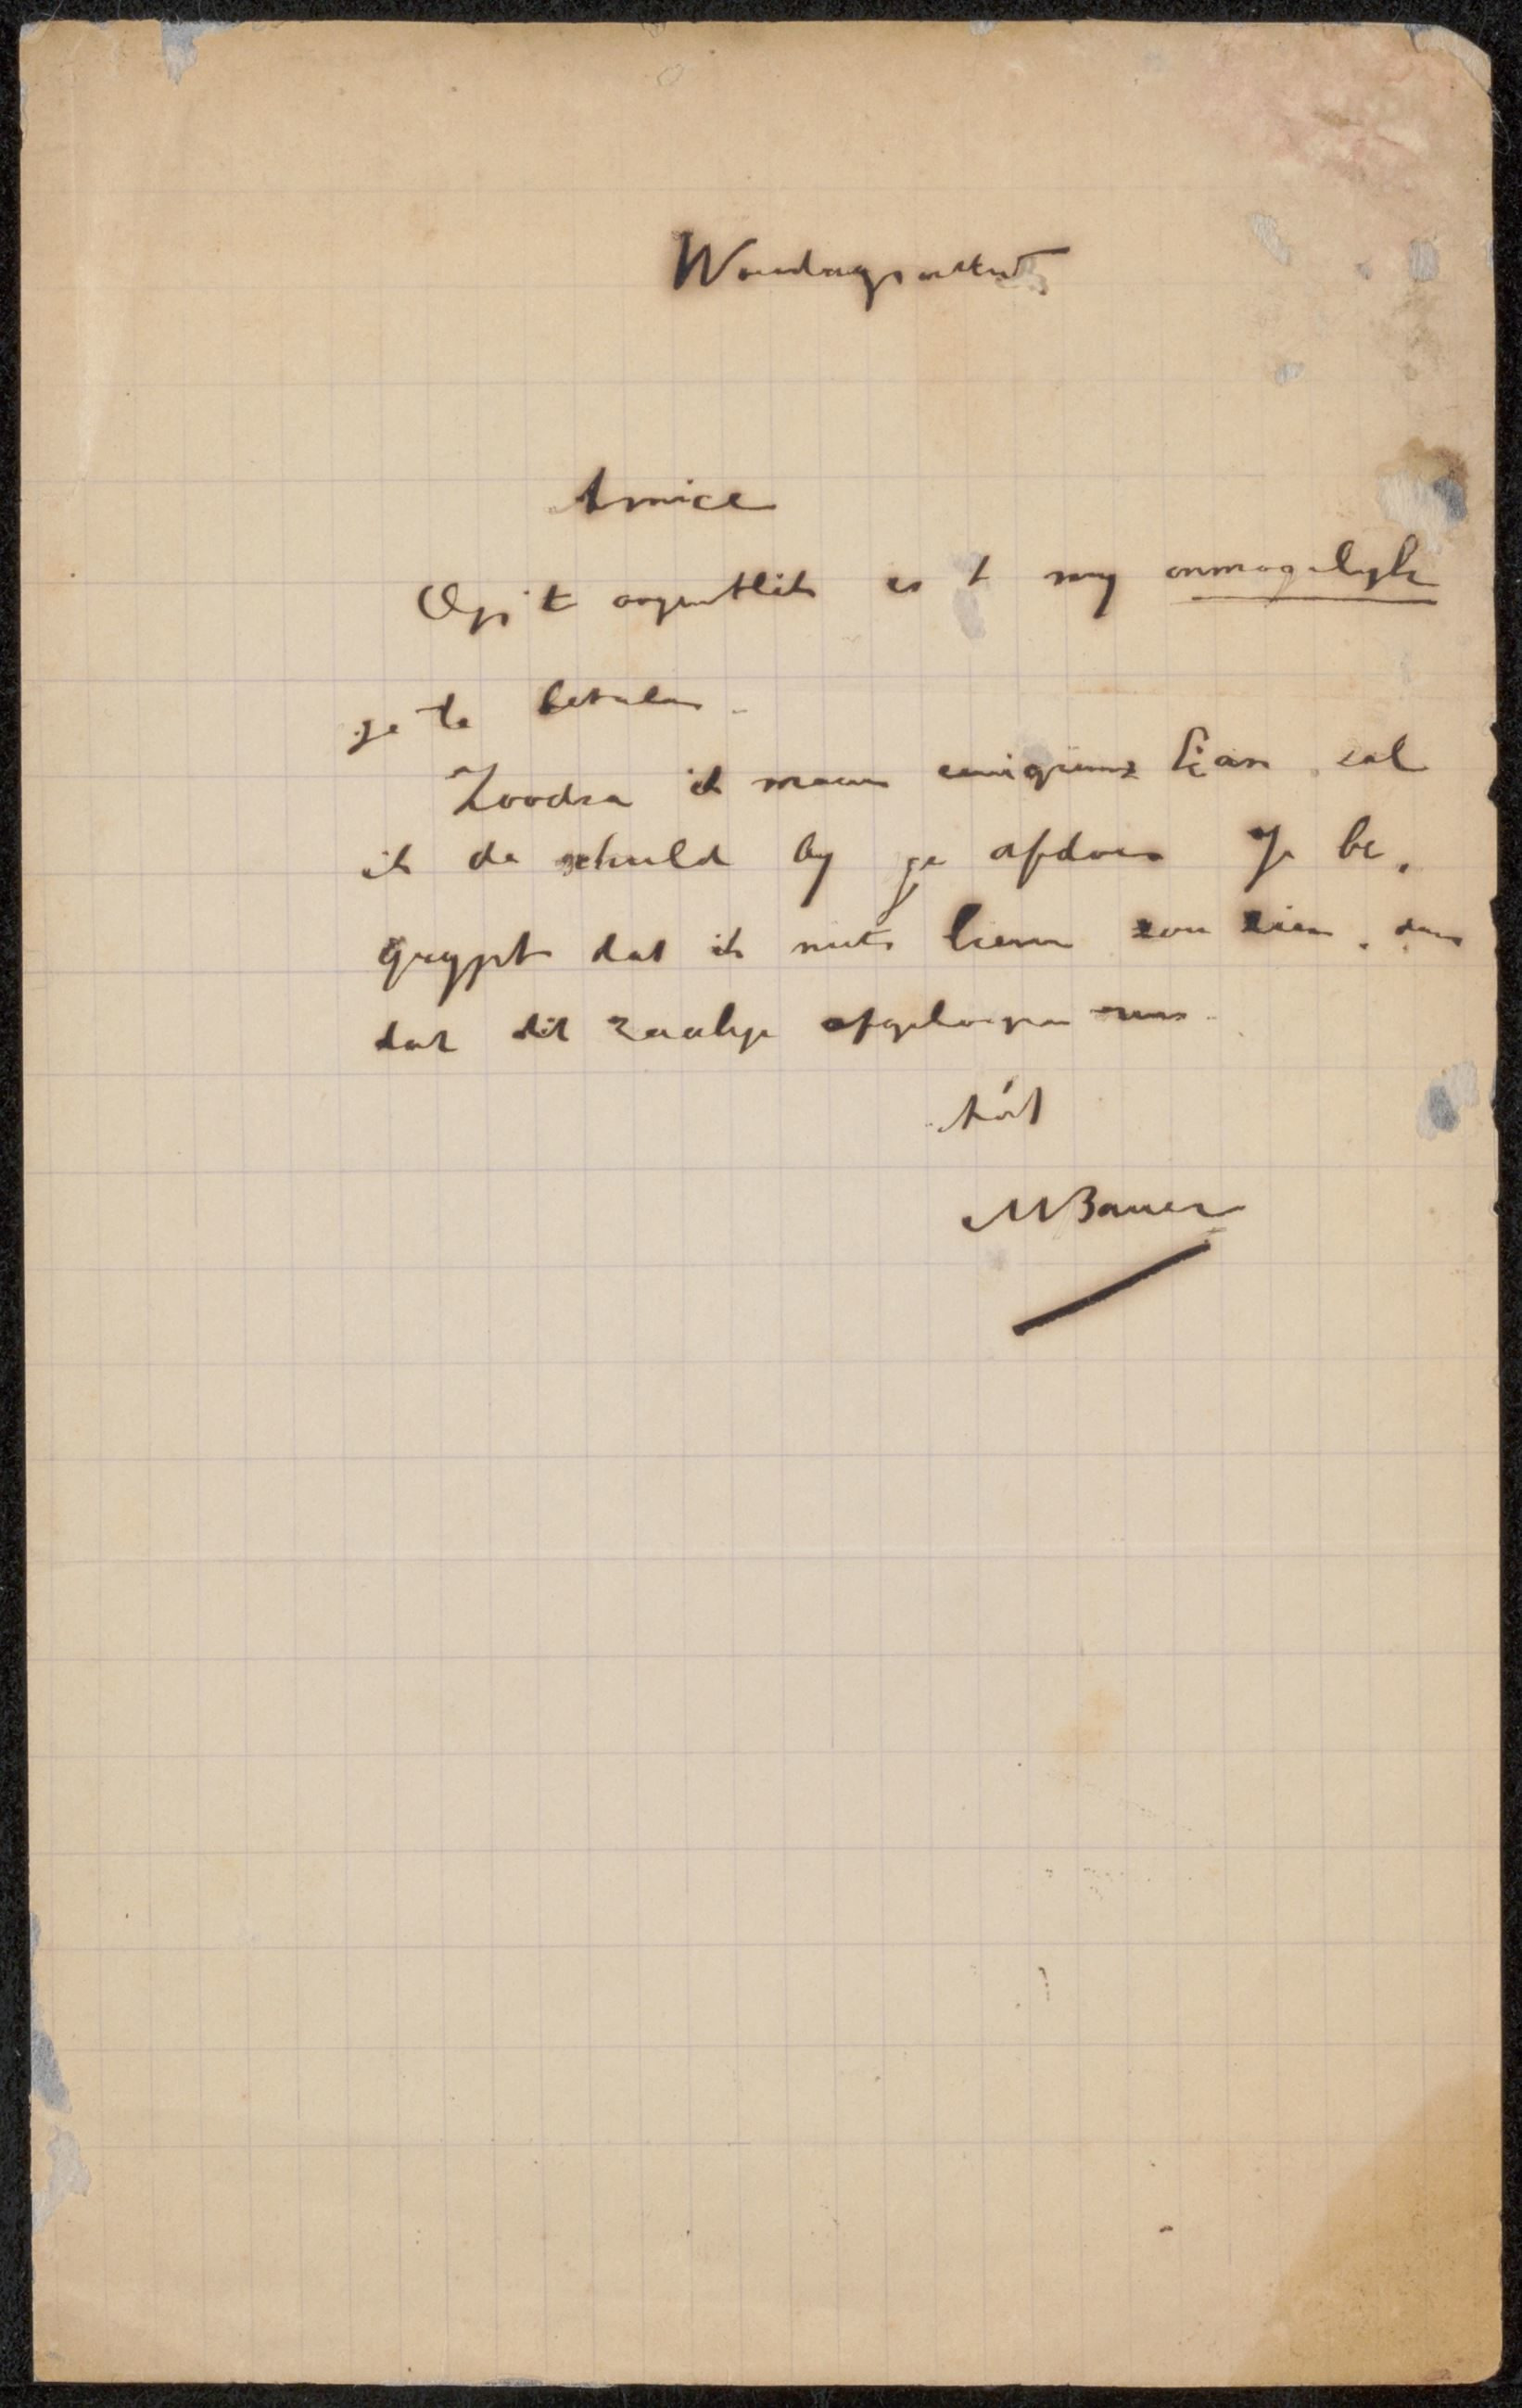 Woensdagsochtend
Amice
Op 't oogenblik is 't my onmogelyk
je te betalen.
Zoodra ik maar eenigzins kan, zal
ik de schuld by je afdoen Je be-
grypt dat ik niets liever zou zien, dan
dat dit zaakje afgeloopen was.
tát
MBauer